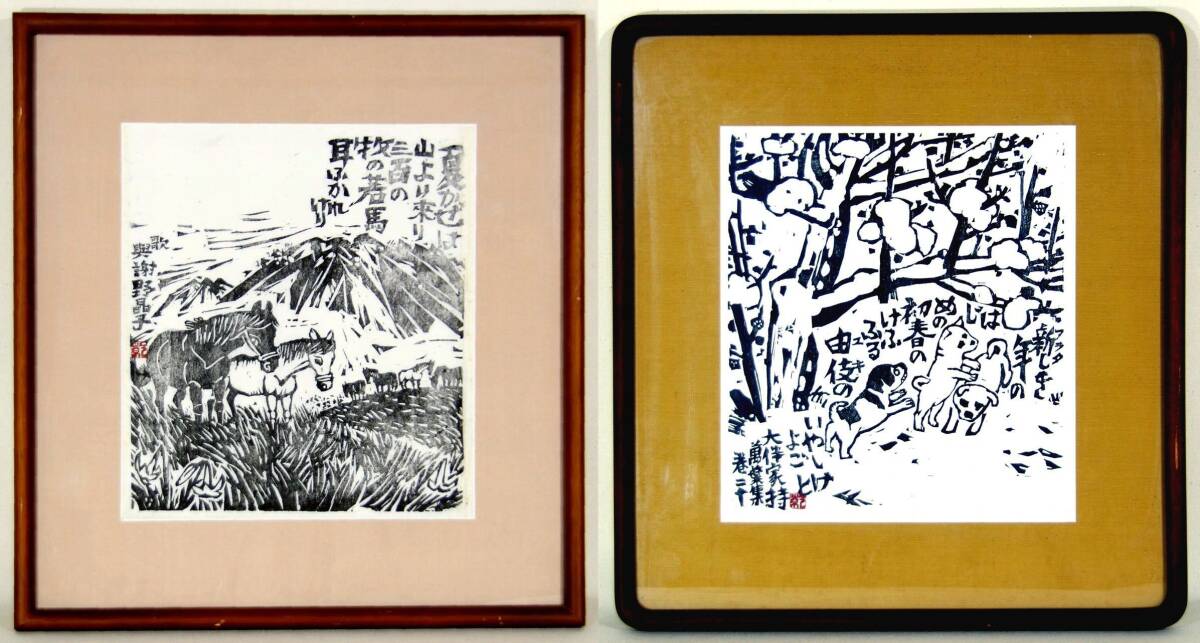 夏のかぜは
山より来り
三百の
牧の若馬
耳ふかれけり
歌
與謝野晶子
新しき
年の
はじ
めの
初春の
けふ
ふる
由伎の
ユキ
いやしけ
よごと
大伴家持
萬葉集
巻二十